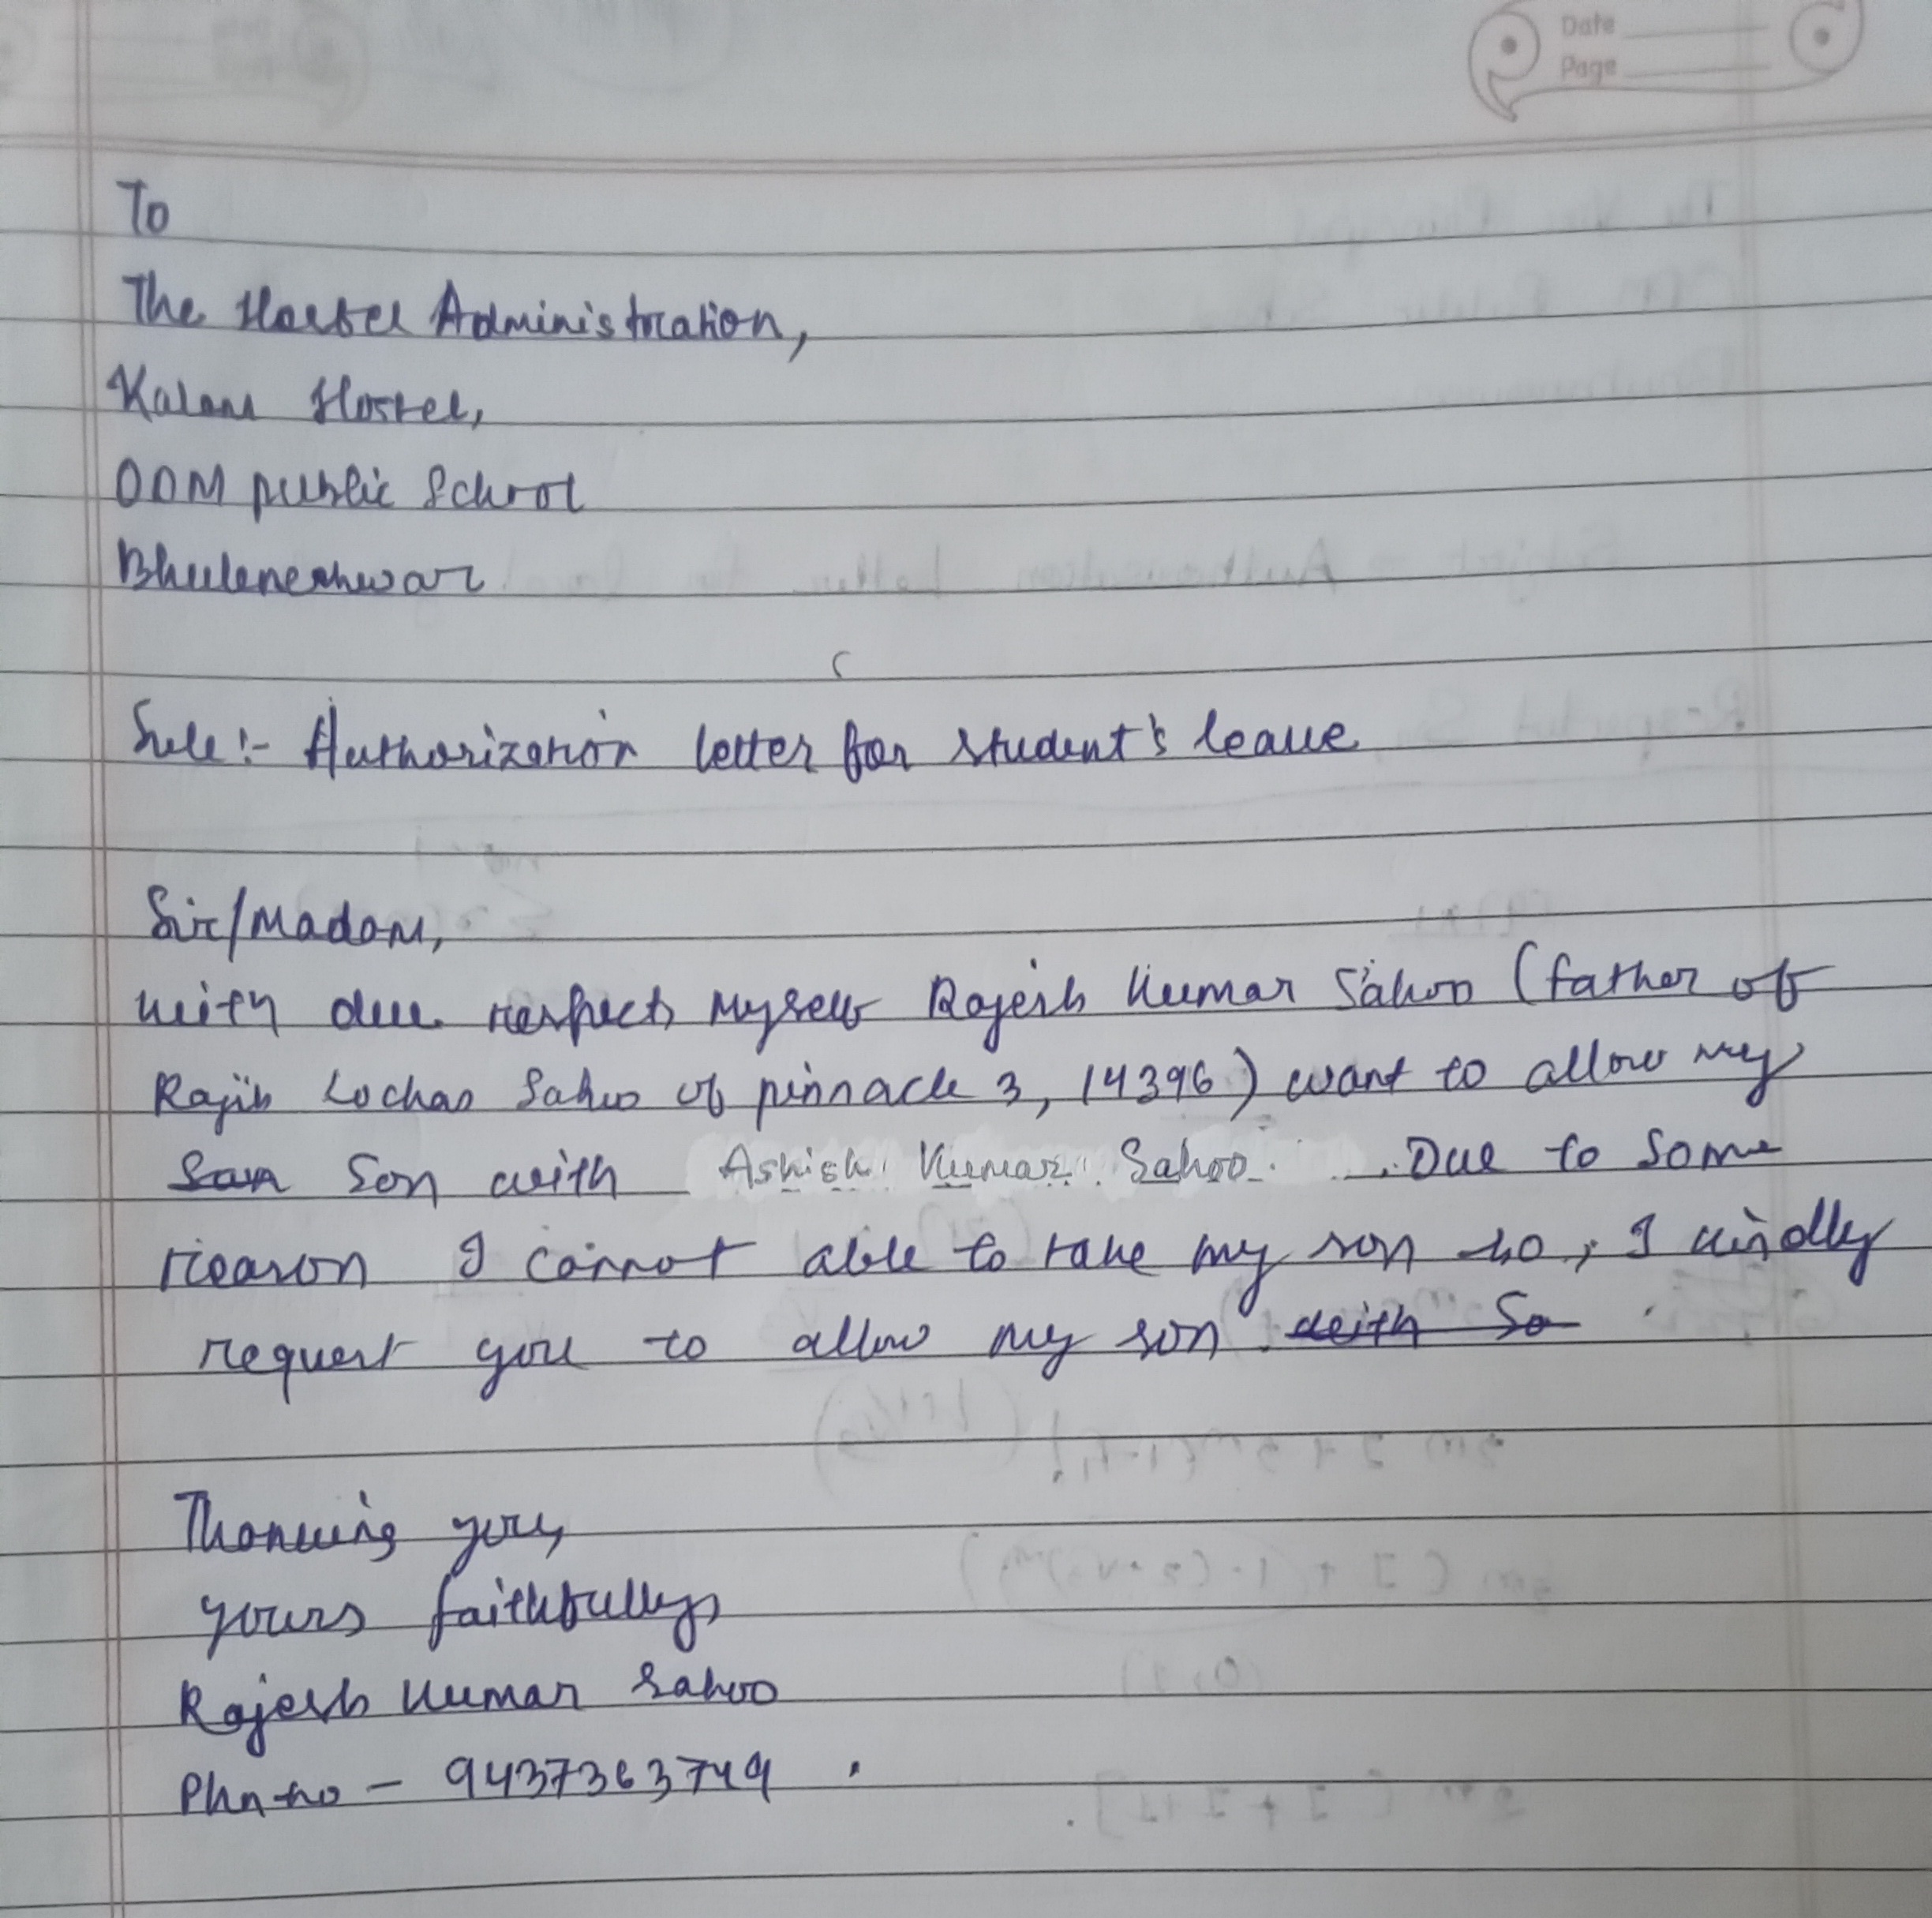 Date
Page
To
The Hostel Administration,
Kalam Hostel,
ODM public School
Bhubneshwar
Sub:- Authorization letter for student's leave
Sir/Madam,
With due respect, myself Rajesh Kumar Sahoo (father of
Rajib Lochan Sahoo of pinnacle 3, 14396) want to allow my
son with Ashish Kumar Sahoo. Due to some
reason I cannot able to take my son so, I kindly
request you to allow my son with So
Thanking you,
yours faithfully,
Rajesh Kumar Sahoo
Phn no - 9437363749.